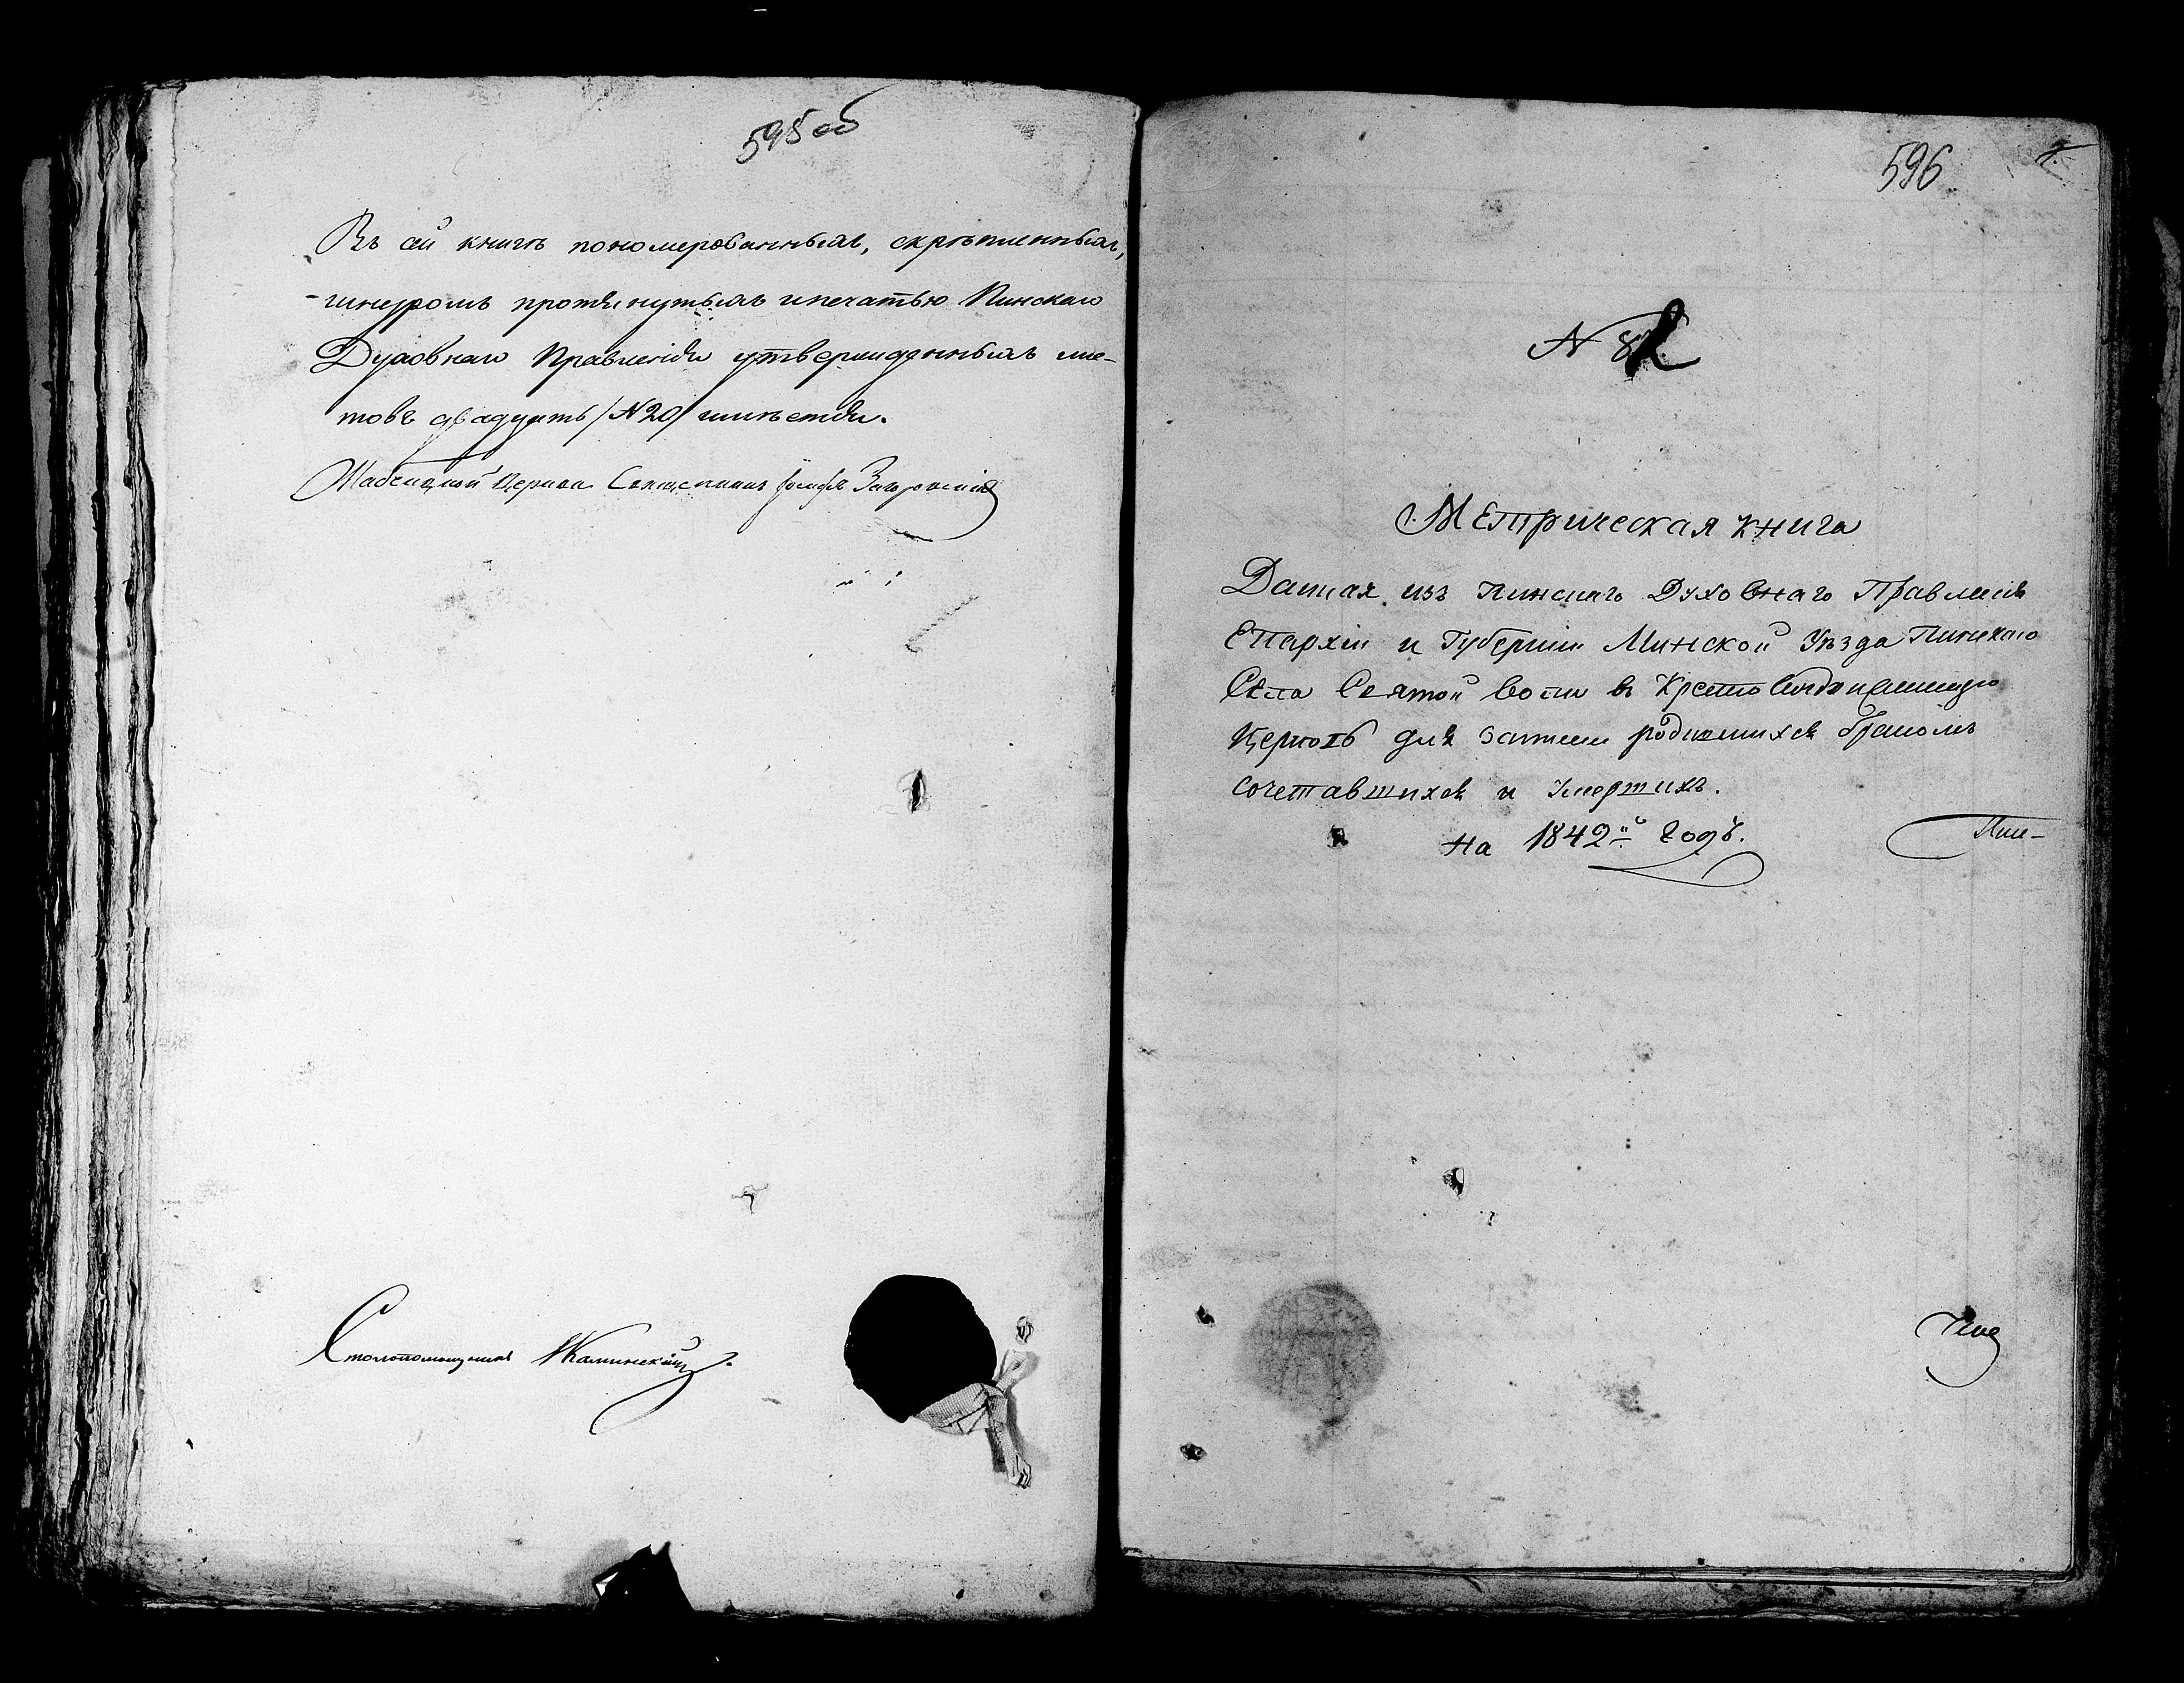 595 об
Въ сей книгѣ пономерованныхъ, скрѣпленныхъ,
шнуромъ протянутыхъ и печатью Пинскаго
Духовнаго Правленія утвержденныхъ лис-
товъ двадцать /N 20/ имѣется.
Церкви Священникъ Іосифъ Загоровскій
Столопомощникъ Каминскій
596
N 82
Метрическая книга
Данная изъ Пинскаго Духовнаго Правленія
Епархіи и Губерніи Минской Уѣзда Пинскаго
Села Святой Воли въ Кресто
Церковь для записи родившихся бракомъ
сочетавшихся и Умершихъ.
На 1842й годъ.